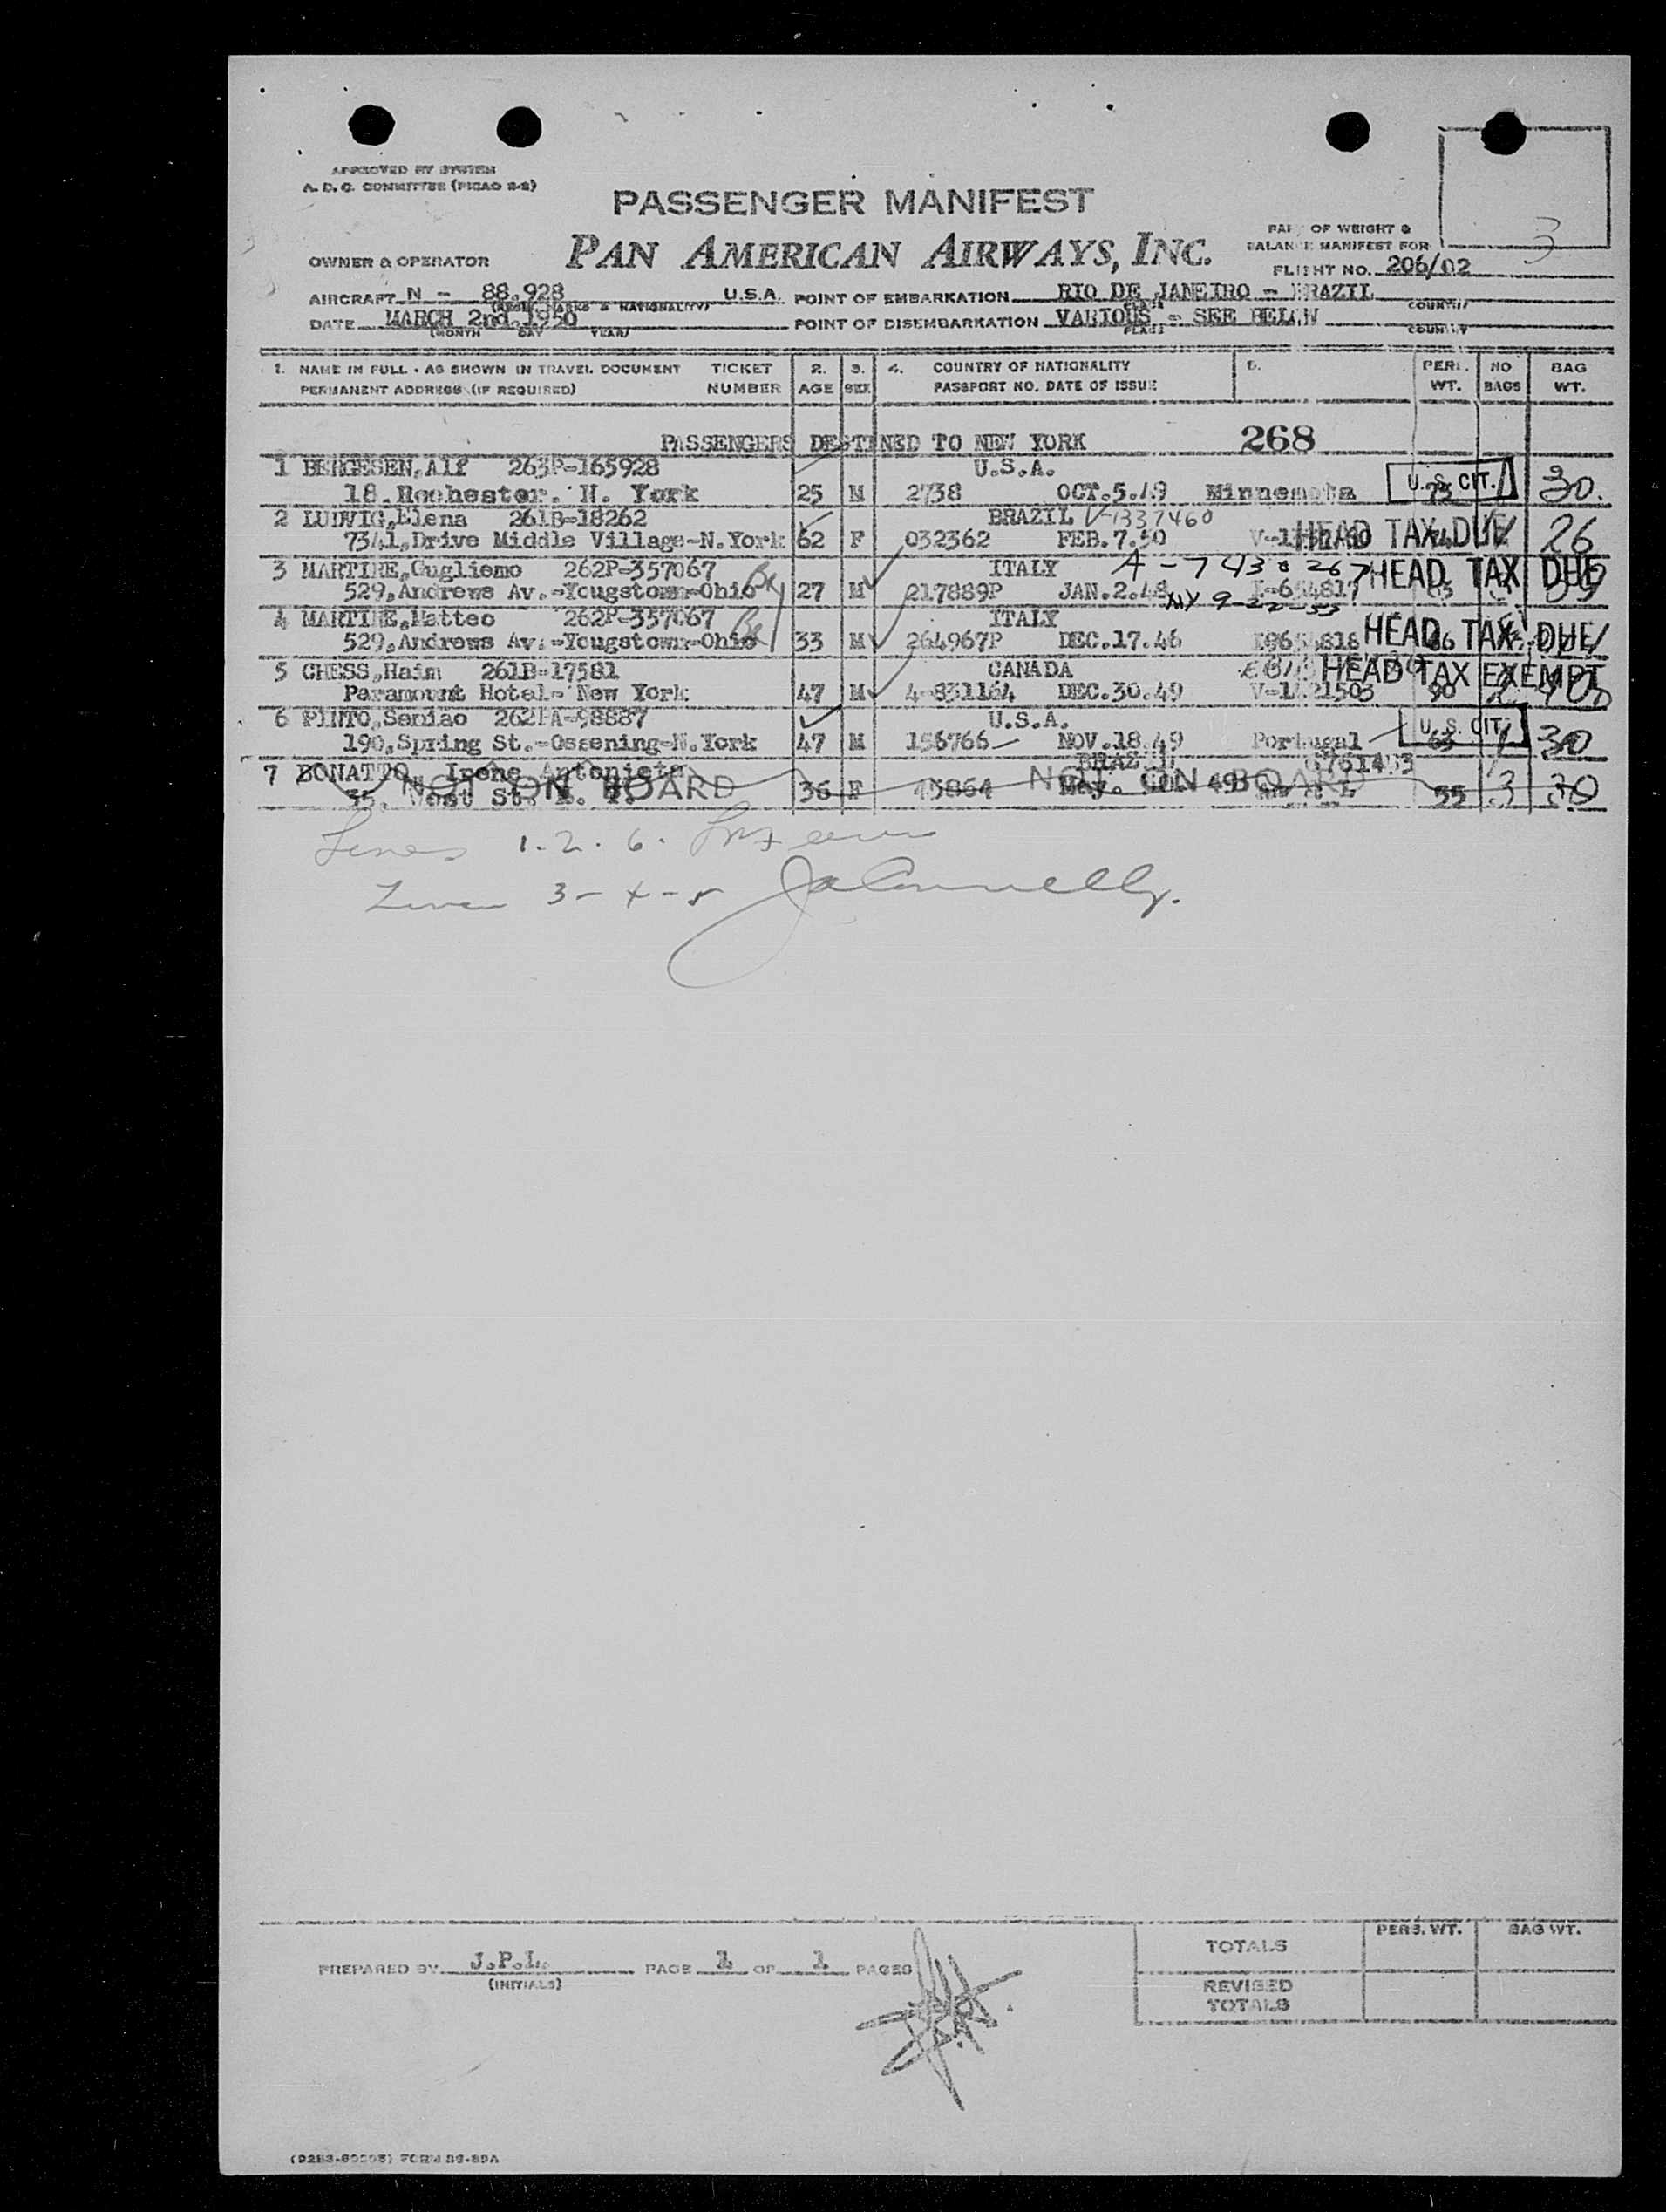 APPROVED BY SYSTEM
A. D. C. COMMITTEE (PICAO 2-2)
PASSENGER MANIFEST
PAN AMERICAN AIRWAYS, INC.
OWNER & OPERATOR
PART OF WEIGHT &
BALANCE MANIFEST FOR
3
FLIGHT NO. 206/02
AIRCRAFT N - 88.928 U.S.A. POINT OF EMBARKATION RIO DE JANEIRO - BRAZIL
DATE MARCH 2nd.1950 POINT OF DISEMBARKATION VARIOUS - SEE BELOW
(MONTH DAY YEAR) PLACE COUNTRY
1. NAME IN FULL - AS SHOWN IN TRAVEL DOCUMENT TICKET 2. 3. 4. COUNTRY OF NATIONALITY 5. PERS. NO BAG
PERMANENT ADDRESS (IF REQUIRED) NUMBER AGE SEX PASSPORT NO. DATE OF ISSUE WT. BAGS WT.
PASSENGERS DESTINED TO NEW YORK 268
1 BERGESEN,Alf 263P-165928 U.S.A.
18.Rochester. N. York 25 M 2738 OCT.5.49 Minnesota U.S. CIT. 30.
2 LUDWIG,Elena 261B-18262 BRAZIL V-1337460
7341,Drive Middle Village-N.York 62 F 032362 FEB.7.50 HEAD TAX DUE 26
3 MARTIRE,Gugliemo 262P-357067 ITALY A-7430267 HEAD TAX DUE
529,Andrews Av.-Yougstown-Ohio 27 M 217889P JAN.2.48 I-654817
NY 9-22-55
4 MARTIRE,Matteo 262P-357067 ITALY
529,Andrews Av.-Yougstown-Ohio 33 M 264967P DEC.17.46 HEAD TAX DUE
5 CHESS,Haim 261B-17581 CANADA HEAD TAX EXEMPT
Paramount Hotel- New York 47 M 4-831164 DEC.30.49 V-1421503 90
6 PINTO,Seniao 262PA-98887 U.S.A.
190,Spring St.-Ossening-N.York 47 M 156766 NOV.18.49 Portugal U.S. CIT. 65 1 30
7 BONATTO, Irene Antonieta BRAZIL
NOT ON BOARD NOT ON BOARD
35, West St. N. Y. 36 F 15864 May. 49 55 3 30
Lines 1. 2. 6.
Lines 3-4-5 JaConnelly.
TOTALS PERS. WT. BAG WT.
PREPARED BY J.P.L. PAGE 1 OF 1 PAGES
(INITIALS)
REVISED
TOTALS